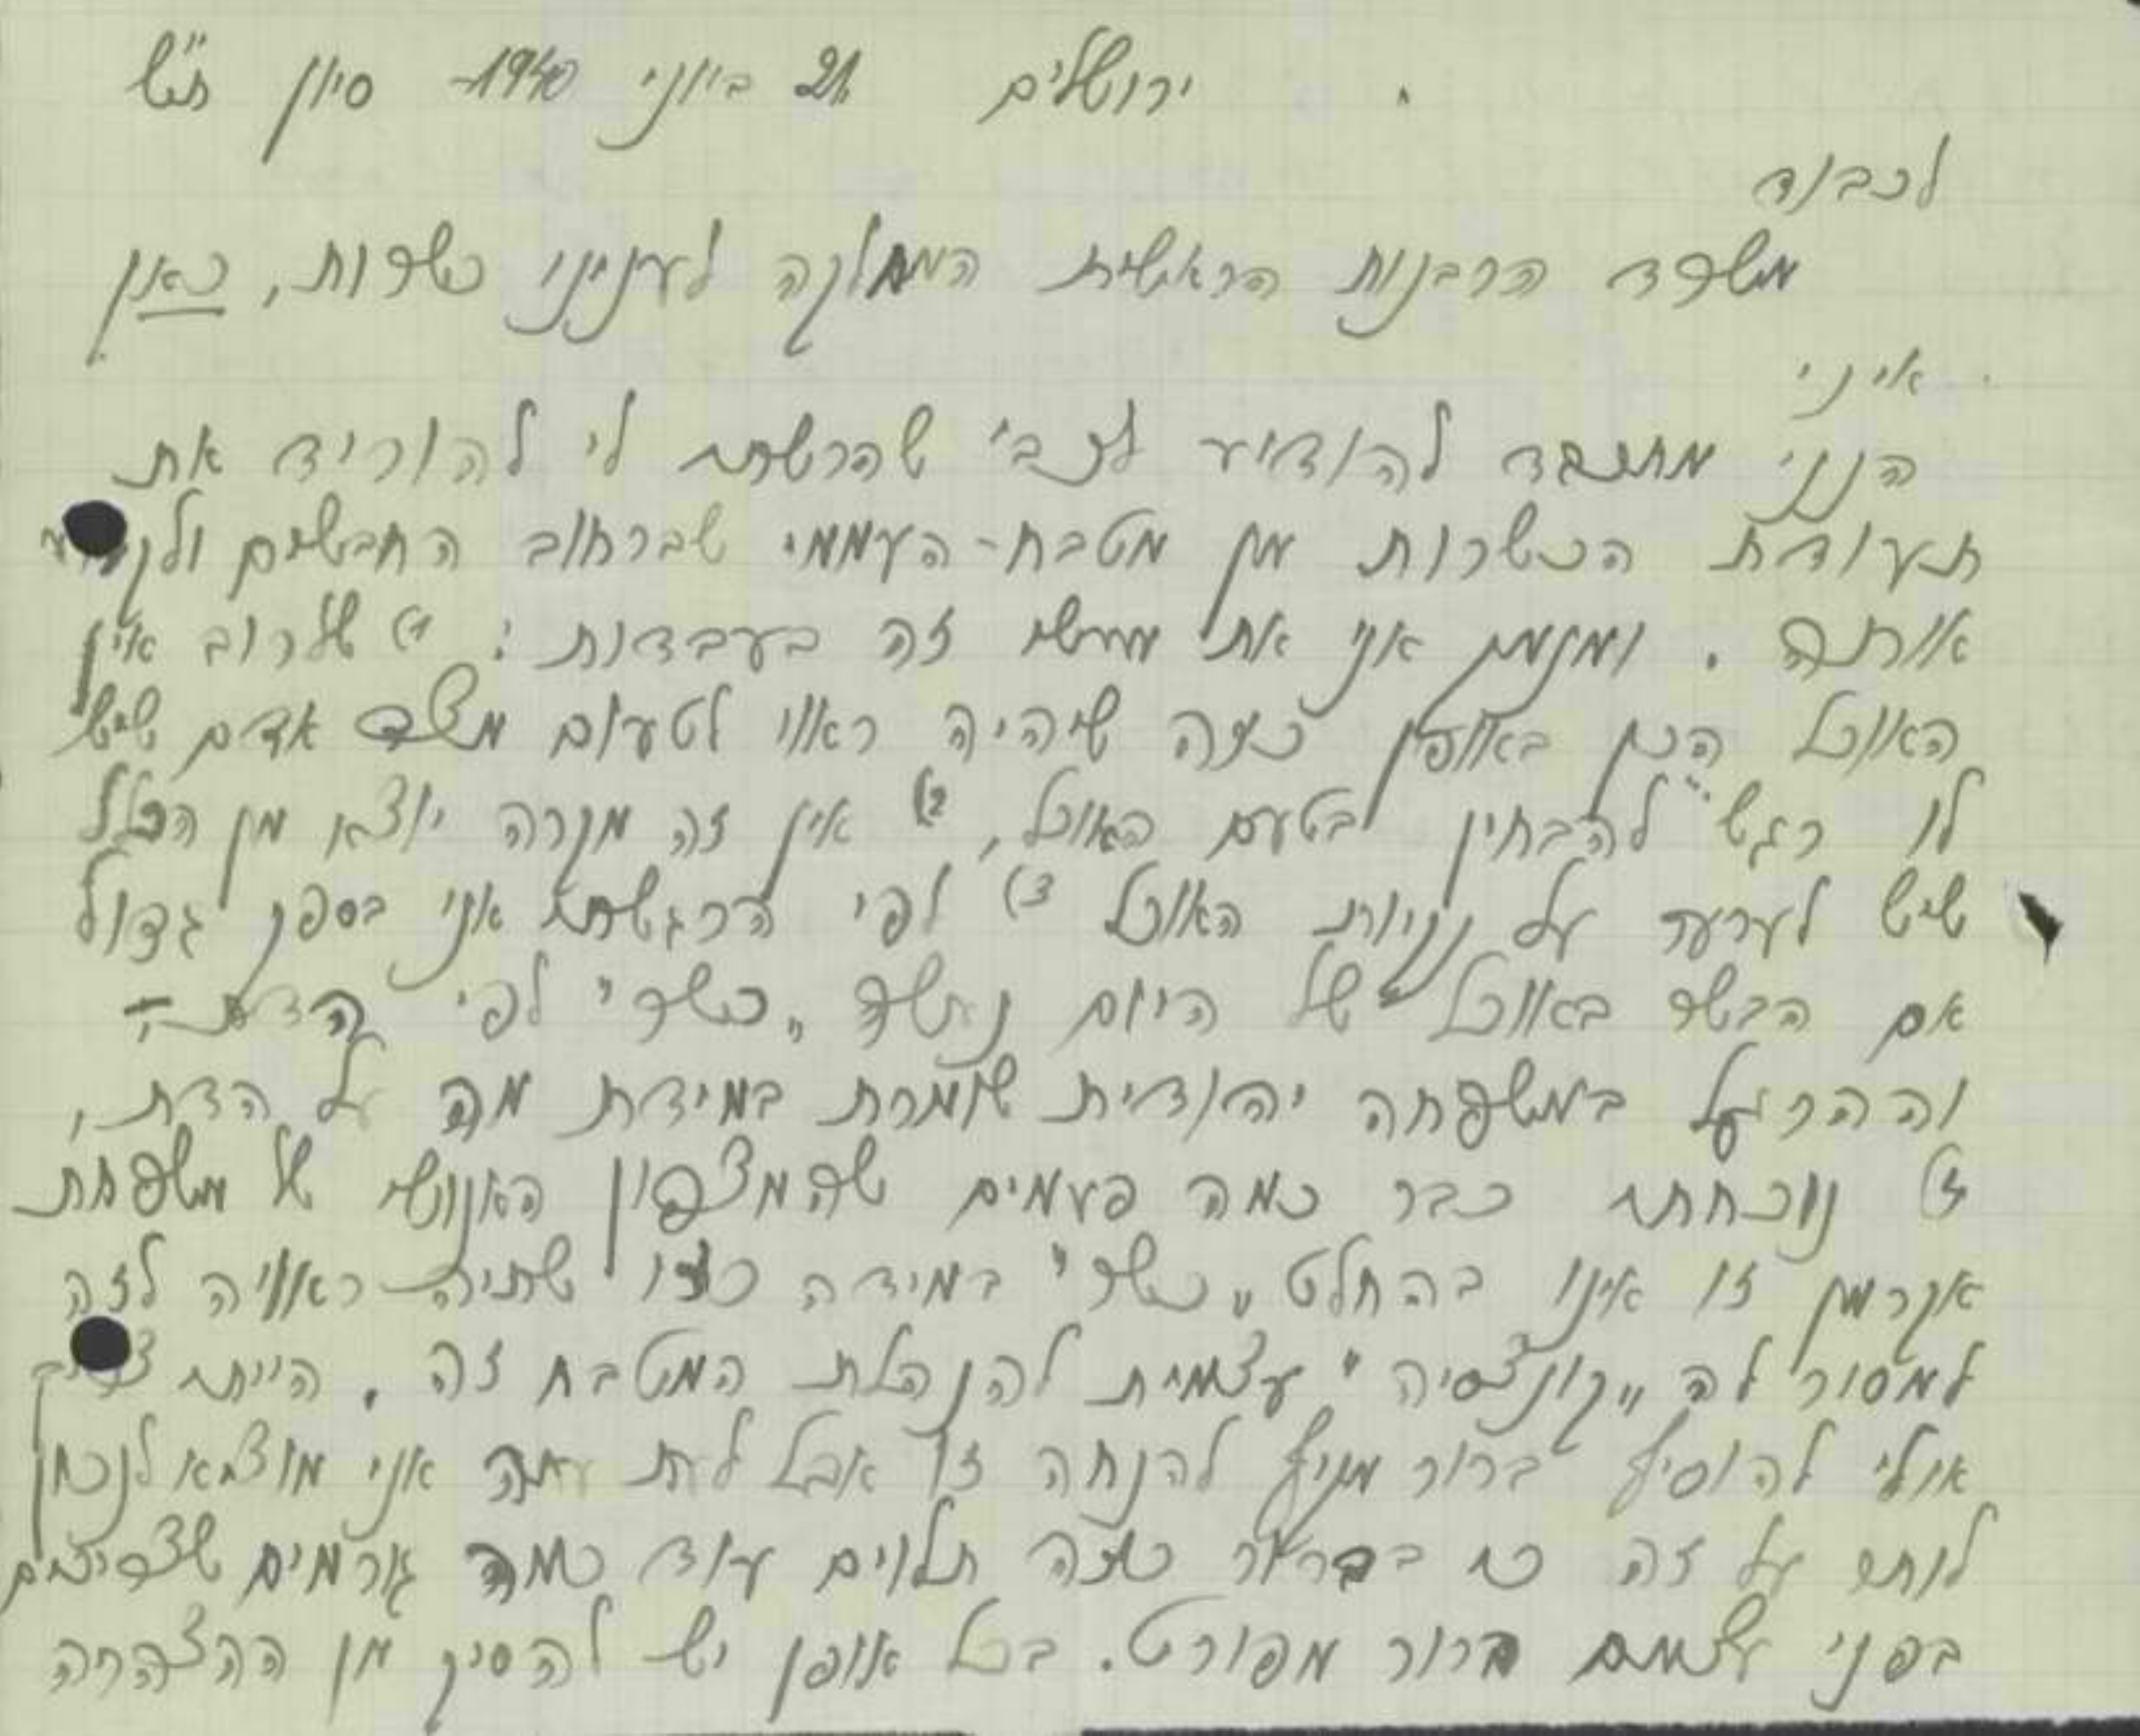 ירושלים 21 ביוני 1940 סיון ת"ש
לכבוד
משרד הרבנות הראשית המחלקה לעניני כשרות, כאן
א.נ.י
הנני מתכבד להודיע לכב' שהרשתי לי להוריד את
תעודת הכשרות מן מטבח-העממי שברחוב החבשים
אותה. ומנמק אני את זה בעבדות: 1) שלרוב אין
האוכל הכן באופן כזה שיהיה ראוי לטעום מצד אדם שיש
לו רגש להבחין בטעם האוכל, 2) אין זה מקרה יוצא מן הכלל
שיש לערער על נקיות האוכל 3) לפי הרגשתי אני בספק גדול
אם הבשר באוכל של היום נתשר "כשר" לפי הדת
וההרגל במשפחה יהודית שומרת במידת מה על הדת,
נוכחתי כבר כמה פעמים שהמצפון האנושי של משפחת
אקרמן זו אינו בהחלט "כשר" במידה כזו שתיה ראויה לזה
למסור לה "קונצסיה" עצמית להנהלת המטבח זה. הייתי צריך
אולי להוסיף ברור מקיף להנחה זו אבל לעת עתה אני מוצא לנכון
לותר על זה כי בברור כזה תלוים עוד כמה גורמים שצריכים
בפני עצמם ברור מפורט. בכל אופן יש להסיק מן ההצהרה